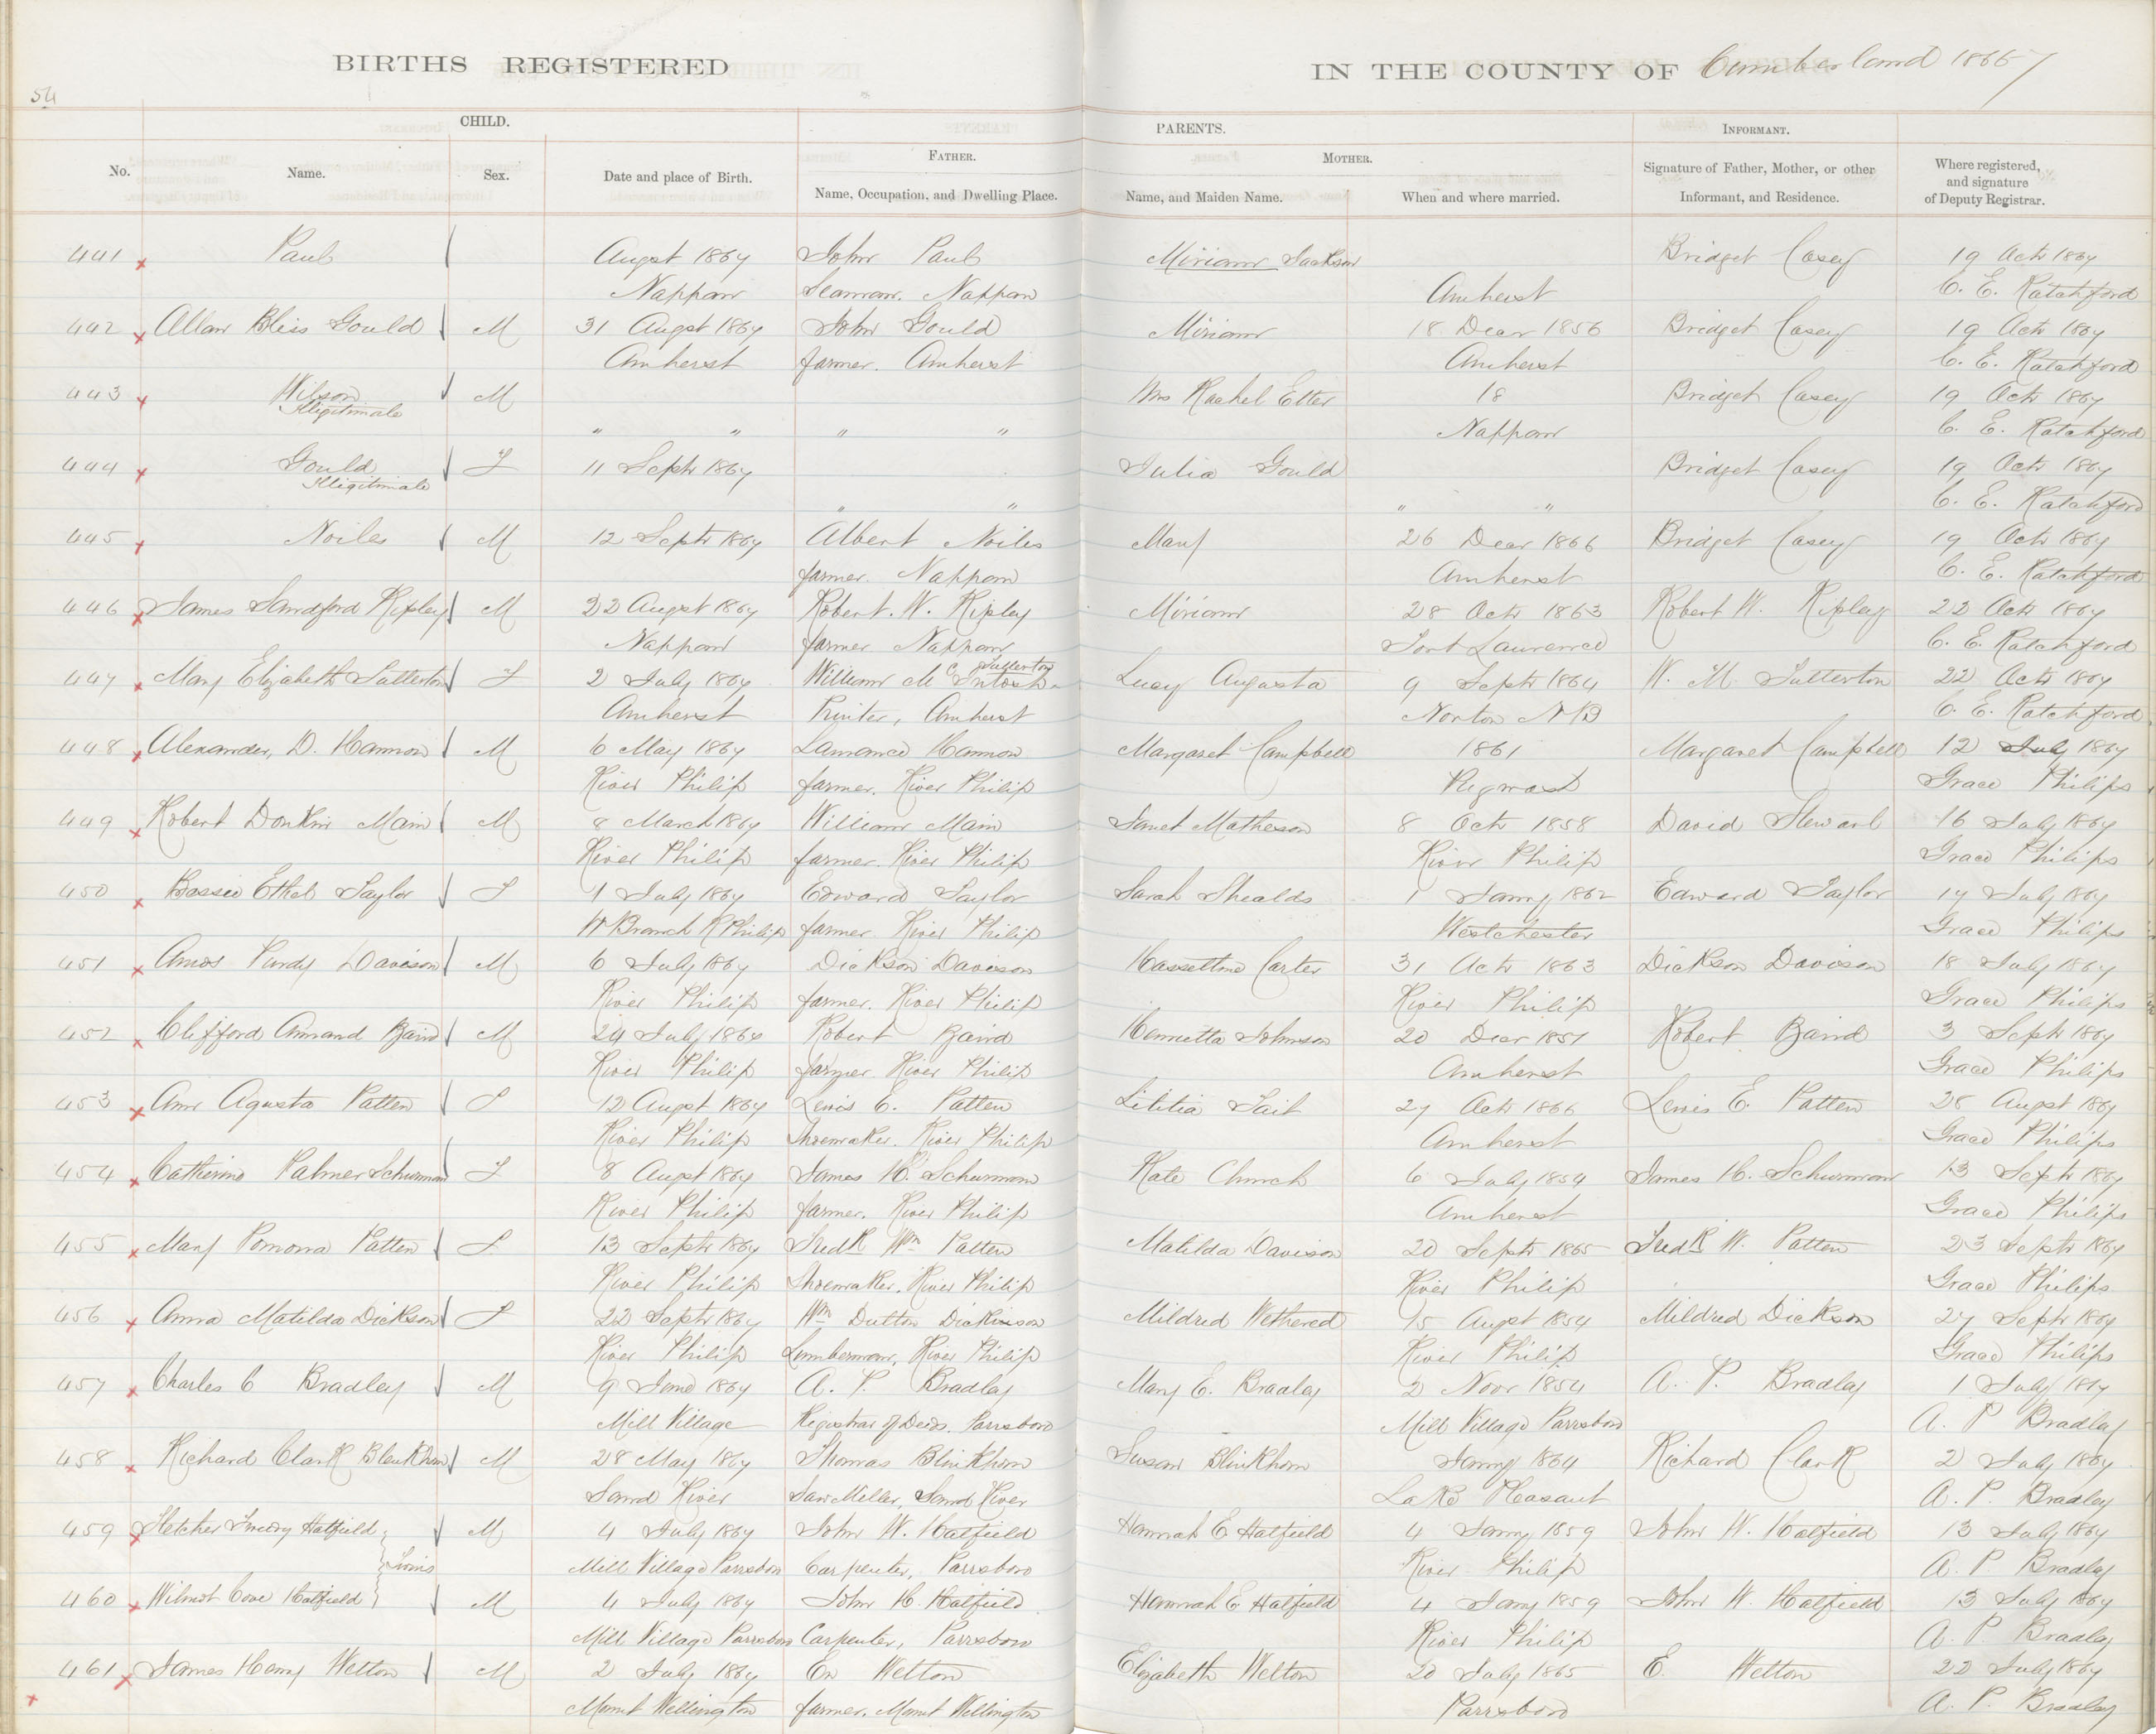 BIRTHS REGISTERED IN THE COUNTY OF Cumberland 1867
54
CHILD. PARENTS. INFORMANT.
No. Name. Sex. Date and place of Birth. FATHER. Name, Occupation, and Dwelling Place. MOTHER. Name, and Maiden Name. When and where married. Signature of Father, Mother, or other Informant, and Residence. Where registered, and signature of Deputy Registrar.
441 Paul Augst 1867 John Paul Miriam Jackson Bridget Casey 19 Octr 1867
Nappan Seaman. Nappan Amherst C. E. Ratchford
442 Allan Bliss Gould M 31 Augst 1867 John Gould Miriam 18 Decr 1856 Bridget Casey 19 Octr 1867
Amherst farmer. Amherst Amherst C. E. Ratchford
443 Wilson M Mrs Rachel Etter 18 Bridget Casey 19 Octr 1867
Illigitimate " " " " Nappan C. E. Ratchford
444 Gould F 11 Septr 1867 Julia Gould Bridget Casey 19 Octr 1867
Illigitimate " " " " C. E. Ratchford
445 Noiles M 12 Septr 1867 Albert Noiles Mary 26 Decr 1866 Bridget Casey 19 Octr 1867
farmer. Nappan Amherst C. E. Ratchford
446 James Sandford Ripley M 22 Augst 1867 Robert. W. Ripley Miriam 28 Octr 1863 Robert W. Ripley 22 Octr 1867
Nappan farmer Nappan Fort Laurence C. E. Ratchford
447 Mary Elizabeth Fullerton F 2 July 1867 William McIntosh Fullerton Lucy Augusta 9 Septr 1864 W. M. Fullerton 22 Octr 1867
Amherst Printer, Amherst Norton NB C. E. Ratchford
448 Alexander, D. Hannon M 6 May 1867 Lawrance Hannon Margaret Campbell 1861 Margaret Campbell 12 July 1867
River Philip farmer. River Philip Pugwash Grace Philips
449 Robert Donkin Main M 8 March 1867 William Main Janet Matheson 8 Octr 1858 David Stewart 16 July 1867
River Philip farmer. River Philip River Philip Grace Philips
450 Bessie Ethel Taylor F 1 July 1867 Edward Taylor Sarah Shealds 1 Jany 1862 Edward Taylor 17 July 1867
W Branch R Philip farmer River Philip Westchester Grace Philips
451 Amos Purdy Davison M 6 July 1867 Dickson Davison Hasseltine Carter 31 Octr 1863 Dickson Davison 18 July 1867
River Philip farmer. River Philip River Philip Grace Philips
452 Clifford Armand Baird M 24 July 1867 Robert Baird Henrietta Johnson 20 Decr 1857 Robert Baird 3 Septr 1867
River Philip farmer River Philip Amherst Grace Philips
453 Ann Agusta Patten F 12 Augst 1867 Lewis E. Patten Lititia Tait 27 Octr 1866 Lewis E. Patten 28 Augst 1867
River Philip Shoemaker. River Philip Amherst Grace Philips
454 Catherine Palmer Schurman F 8 Augst 1867 James H. Schurman Kate Church 6 July 1854 James H. Schurman 13 Septr 1867
River Philip farmer. River Philip Amherst Grace Philips
455 Mary Pomona Patten F 13 Septr 1867 Fredk Wm Patten Matilda Davison 20 Septr 1865 Fredk W. Patten 23 Septr 1867
River Philip Shoemaker. River Philip River Philip Grace Philips
456 Anna Matilda Dickson F 22 Septr 1867 Wm Dutton Dickinson Mildred Wethered 15 Augst 1854 Mildred Dickson 27 Septr 1867
River Philip Lumberman, River Philip River Philip Grace Philips
457 Charles C Bradley M 9 June 1867 A. P. Bradley Mary E. Bradley 2 Novr 1854 A. P. Bradley 1 July 1867
Mill Village Registrar of Deeds. Parrsboro Mill Village Parrsboro A. P Bradley
458 Richard Clark Blenkhorn M 28 May 1867 Thomas Blinkhorn Susan Blinkhorn Jany 1864 Richard Clark 2 July 1867
Sand River Saw Miller, Sand River Lake Pleasant A. P. Bradley
459 Fletcher Hatfield M 4 July 1867 John W. Hatfield Hannah E Hatfield 4 Jany 1859 John W. Hatfield 13 July 1867
Twins Mill Village Parrsboro Carpenter, Parrsboro River Philip A. P. Bradley
460 Wilmot Cove Hatfield M 4 July 1867 John H. Hatfield Hannah E Hatfield 4 Jany 1859 John W. Hatfield 13 July 1867
Mill Village Parrsboro Carpenter, Parrsboro River Philip A. P. Bradley
461 James Henry Welton M 2 July 1867 En Welton Elizabeth Welton 20 July 1865 E. Welton 22 July 1867
Mount Wellington farmer. Mount Wellington Parrsboro A. P. Bradley